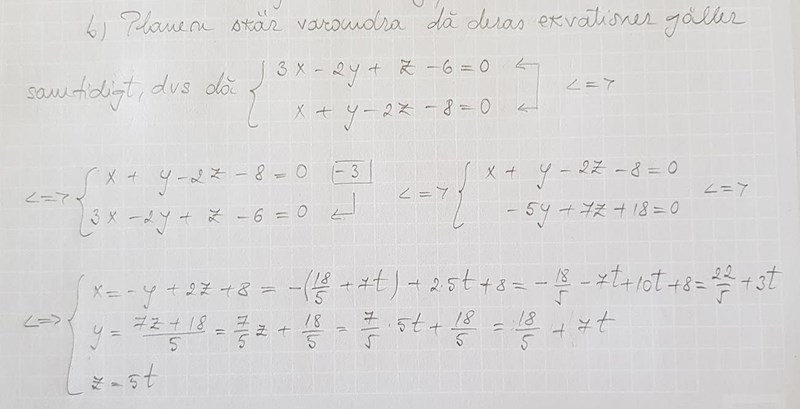 b) Planen skär varandra då deras ekvationer gäller
samtidigt, dvs då { 3x - 2y + z - 6 = 0
x + y - 2z - 8 = 0 <=>
<=> { x + y - 2z - 8 = 0 -3 <=> { x + y - 2z - 8 = 0
3x - 2y + z - 6 = 0 -5y + 7z + 18 = 0 <=>
<=> { x = -y + 2z + 8 = -(18/5 + 7t) + 2·5t + 8 = -18/5 - 7t + 10t + 8 = 22/5 + 3t
y = (7z + 18)/5 = 7/5 z + 18/5 = 7/5 · 5t + 18/5 = 18/5 + 7t
z = 5t